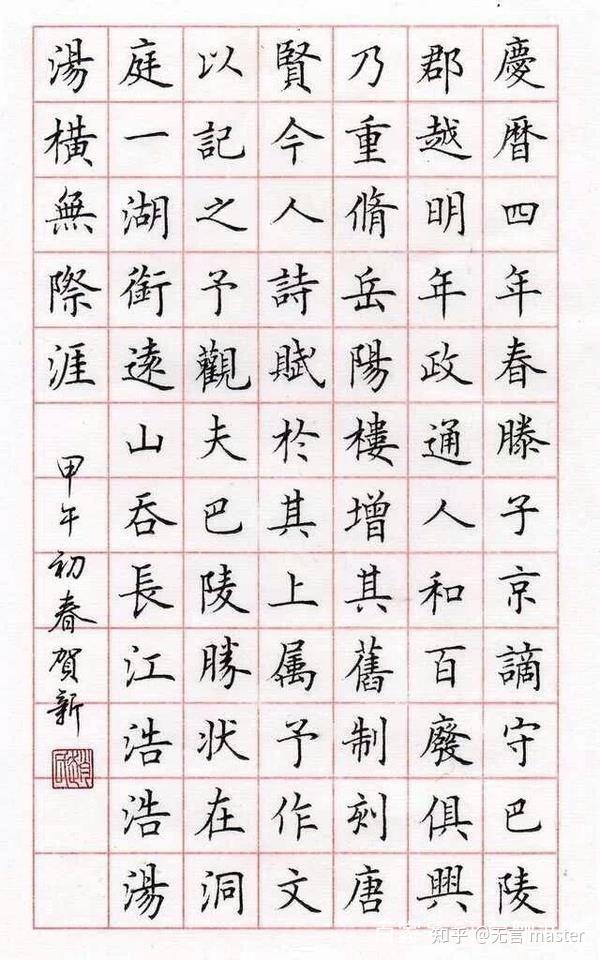 慶曆四年春滕子京謫守巴陵
郡越明年政通人和百廢俱興
乃重脩岳陽樓增其舊制刻唐
賢今人詩賦於其上属予作文
以記之予觀夫巴陵勝状在洞
庭一湖銜遠山吞長江浩浩湯
湯橫無際涯
甲午初春賀新
知乎 @无言master